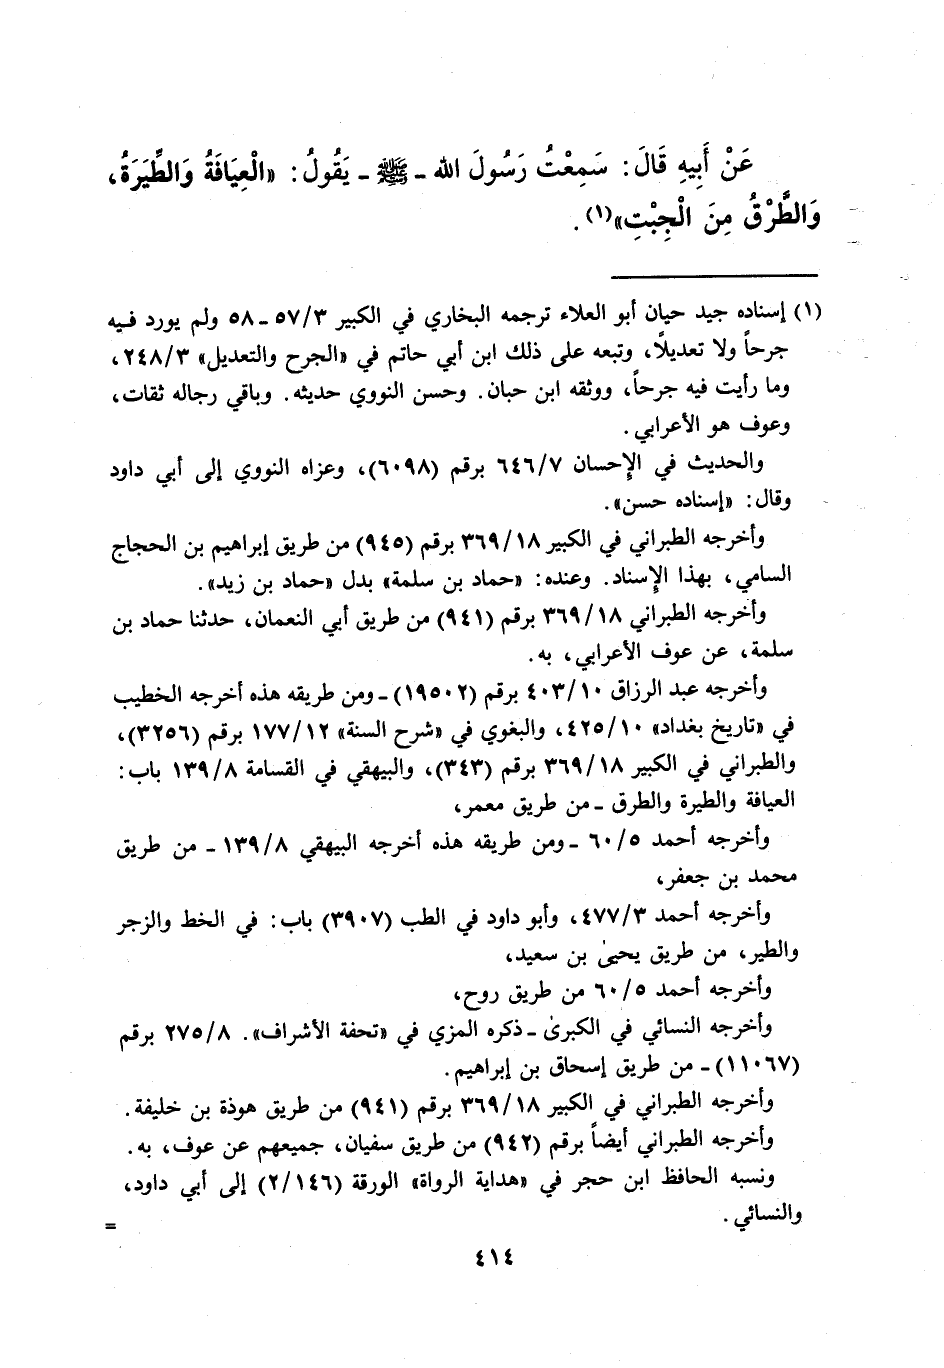 عَنْ أَبِيهِ قَالَ: سَمِعْتُ رَسُولَ الله ـ ﷺ ـ يَقُولُ: «الْعِيَافَةُ وَالطِّيَرَةُ،
وَالطَّرْقُ مِنَ الْجِبْتِ»(١).
(١) إسناده جيد حيان أبو العلاء ترجمه البخاري في الكبير ٥٧/٣ ـ ٥٨ ولم يورد فيه
جرحاً ولا تعديلًا، وتبعه على ذلك ابن أبي حاتم في «الجرح والتعديل» ٢٤٨/٣،
وما رأيت فيه جرحاً، ووثقه ابن حبان. وحسن النووي حديثه. وباقي رجاله ثقات،
وعوف هو الأعرابي.
والحديث في الإحسان ٦٤٦/٧ برقم (٦٠٩٨)، وعزاه النووي إلى أبي داود
وقال: «إسناده حسن».
وأخرجه الطبراني في الكبير ٣٦٩/١٨ برقم (٩٤٥) من طريق إبراهيم بن الحجاج
السامي، بهذا الإسناد. وعنده: «حماد بن سلمة» بدل «حماد بن زيد».
وأخرجه الطبراني ٣٦٩/١٨ برقم (٩٤١) من طريق أبي النعمان، حدثنا حماد بن
سلمة، عن عوف الأعرابي، به.
وأخرجه عبد الرزاق ٤٠٣/١٠ برقم (١٩٥٠٢) ـ ومن طريقه هذه أخرجه الخطيب
في «تاريخ بغداد» ٤٢٥/١٠، والبغوي في «شرح السنة» ١٧٧/١٢ برقم (٣٢٥٦)،
والطبراني في الكبير ٣٦٩/١٨ برقم (٣٤٣)، والبيهقي في القسامة ١٣٩/٨ باب:
العيافة والطيرة والطرق ـ من طريق معمر،
وأخرجه أحمد ٦٠/٥ ـ ومن طريقه هذه أخرجه البيهقي ١٣٩/٨ ـ من طريق
محمد بن جعفر،
وأخرجه أحمد ٤٧٧/٣، وأبو داود في الطب (٣٩٠٧) باب: في الخط والزجر
والطير، من طريق يحيىٰ بن سعيد،
وأخرجه أحمد ٦٠/٥ من طريق روح،
وأخرجه النسائي في الكبرىٰ ـ ذكره المزي في «تحفة الأشراف». ٢٧٥/٨ برقم
(١١٠٦٧) ـ من طريق إسحاق بن إبراهيم.
وأخرجه الطبراني في الكبير ٣٦٩/١٨ برقم (٩٤١) من طريق هوذة بن خليفة.
وأخرجه الطبراني أيضاً برقم (٩٤٢) من طريق سفيان، جميعهم عن عوف، به.
ونسبه الحافظ ابن حجر في «هداية الرواة» الورقة (٢/١٤٦) إلى أبي داود،
والنسائي.
=
٤١٤